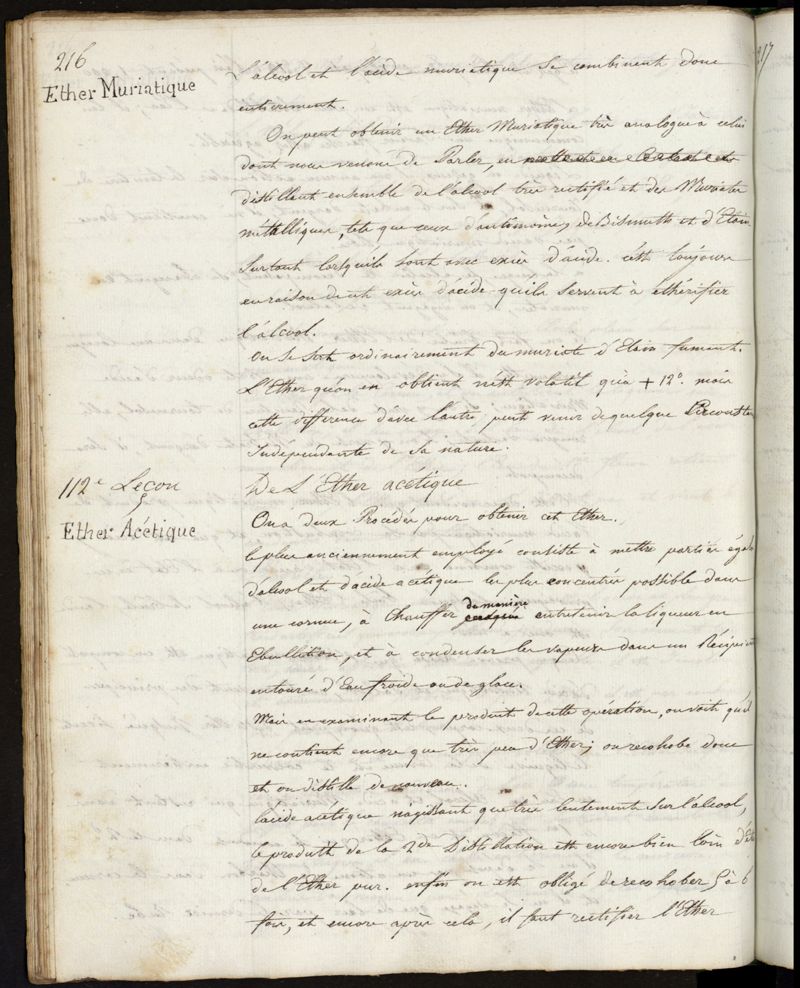 216
Ether Muriatique
L'alcool et l'acide muriatique se combinent donc
entierement.
On peut obtenir un Ether Muriatique très analogue à celui
dont nous venons de Parler, en
distillant ensemble de l'alcool très rectifié et des Muriates
métalliques, tels que ceux d'antimoine, de Bismuth et d'Etain
surtout lorsqu'ils sont avec excès d'acide. c'est toujours
en raison de cet excès d'acide qu'ils servent à éthérifier
l'alcool.
On se sert ordinairement du muriate d'Etain fumant.
L'Ether qu'on en obtient n'est volatil qu'à + 12°. mais
cette différence d'avec l'autre peut venir de quelque Circonst
Indépendante de sa nature.
112e Leçon
De L'Ether acétique
Ether Acétique
On a deux Procédés pour obtenir cet Ether.
le plus anciennement employé consiste à mettre parties éga
d'alcool et d'acide acétique le plus concentré possible dans
une cornue, à Chauffer de manière entretenir la liqueur en
Ebullition, et à condenser les vapeurs dans un Récipi
entouré d'Eau froide ou de glace.
Mais en examinant le produit de cette opération, on voit qu'il
ne contient encore que très peu d'Ether; on recohobe donc
et on distille de nouveau.
l'acide acétique n'agissant que très lentement sur l'alcool,
le produit de la 2de Distillation est encore bien loin d'êt
de l'Ether pur. enfin on est obligé de recohober 5 à 6
fois, et encore après cela, il faut rectifier l'Ether